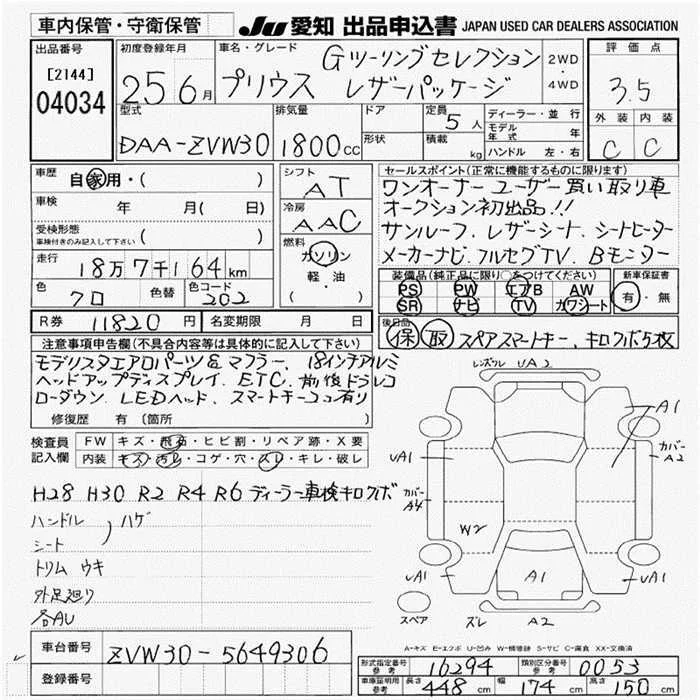 車内保管・守衛保管
JU 愛知 出品申込書 JAPAN USED CAR DEALERS ASSOCIATION
出品番号
[2144]
04034
初度登録年月
25 6月
車名・グレード
プリウス
Gツーリングセレクション
レザーパッケージ
2WD
・
4WD
評価点
3.5
外装 内装
C C
型式
DAA-ZVW30
排気量
1800cc
ドア
形状
定員
5人
積載
kg
ディーラー・並行
モデル年式 年
ハンドル 左・右
車歴 自家用・( )
車検 年 月( 日)
受検形態 ( )
車検付きのみ記入して下さい
走行 18万7千164km
色 クロ 色替 色コード 202
シフト
AT
冷房
AAC
燃料
ガソリン
・
軽・油
( )
セールスポイント(正常に機能するものに限ります)
ワンオーナー ユーザー買い取り車
オークション初出品!!
サンルーフ、レザーシート、シートヒーター
メーカーナビ、フルセグTV、Bモニター
装備品(純正品に限り○をつけてください)
PS PW エアB AW
SR ナビ TV カワシート
新車保証書
有・無
R券 11820円 名変期限 月 日
後日品
保 取 スペアスマートキー、キロクボ5枚
注意事項申告欄(不具合内容等は具体的に記入して下さい)
モデリスタエアロパーツ&マフラー、18インチアルミ
ヘッドアップディスプレイ、ETC、前後ドラレコ
ローダウン、LEDヘッド、スマートキー2コ有り
修復歴 有 〔箇所 〕
検査員記入欄
FW キズ・飛石・ヒビ割・リペア跡・X要
内装 キズ・汚れ・コゲ・穴・スレ・キレ・破レ
H28 H30 R2 R4 R6 ディーラー車検キロクボ
ハンドル ハゲ
シート
トリム ウキ
外足廻り
各AU
レンズワル UA2
A1
カバーA2
UA1
カバーA4
W2
UA1
A1
UA1
スペア
ズレ A2
A-キズ E-エクボ U-凹み W-補修跡 S-サビ C-腐食 XX-交換済
車台番号 ZVW30-5649306
登録番号
形式指定番号 参考 16294 類別区分番号 参考 0053
車庫証明用 参考 長さ 448cm 幅 174cm 高さ 150cm